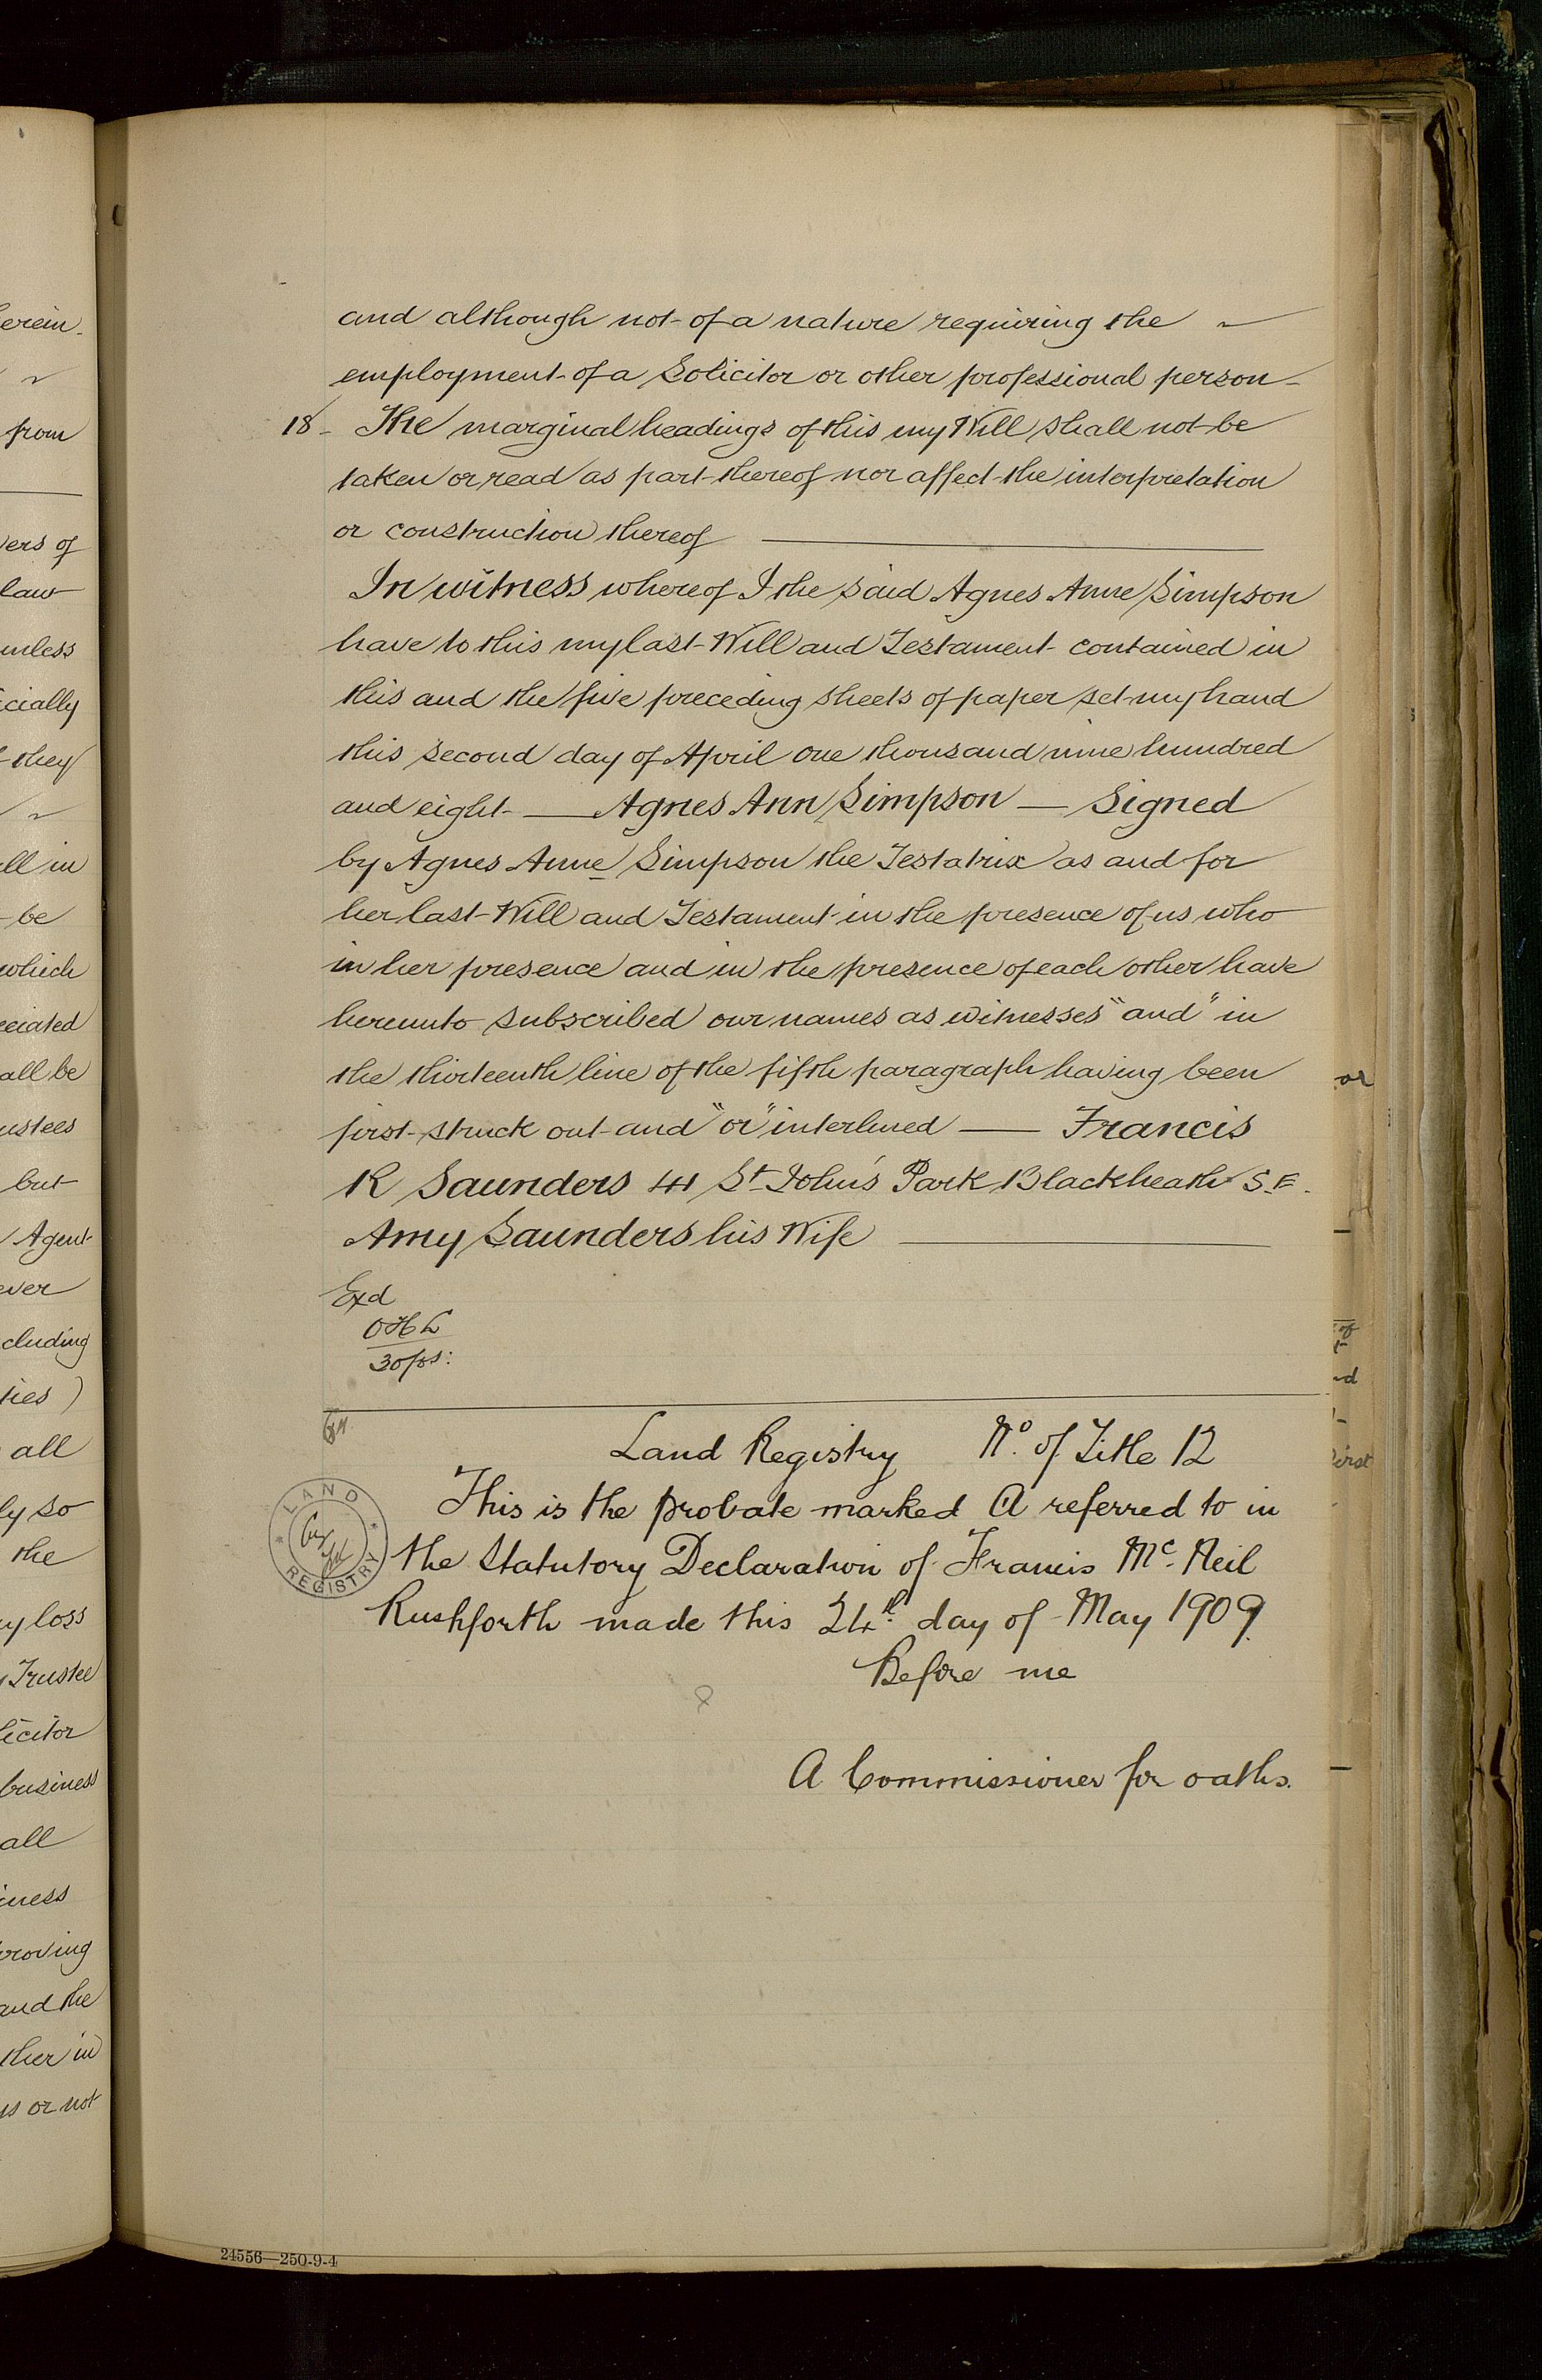 and although not of a nature requiring the
employment of a Solicitor or other professional person
18 The marginal headings of this my Will shall not be
taken or read as part thereof nor affect the interpretation
or construction thereof
In witness whereof I the said Agnes Anne Simpson
have to this my last Will and Testament contained in
this and the five preceding sheets of paper set my hand
this second day of April one thousand nine hundred
and eight — Agnes Ann Simpson — Signed
by Agnes Anne Simpson the Testatrix as and for
her last Will and Testament in the presence of us who
in her presence and in the presence of each other have
hereunto subscribed our names as witnesses "and" in
the thirteenth line of the fifth paragraph having been
first struck out and "or" interlined — Francis
R Saunders 41 St John's Park Blackheath S.E.
Amy Saunders his Wife
Exd
OHL
30fos:
Land Registry No. of Title 12
This is the probate marked A referred to in
the Statutory Declaration of Francis Mc. Neil
Rushforth made this 24th day of May 1909.
Before me
A Commissioner for oaths.
LAND REGISTRY
24556—250-9-4
erein
from
ers of
law
unless
icially
they
ll in
be
which
eciated
all be
ustees
but
Agent
ever
cluding
ties)
all
ly so
the
y loss
Trustee
licitor
business
all
iness
roving
and the
ther in
ys or not
or
of
nd
first